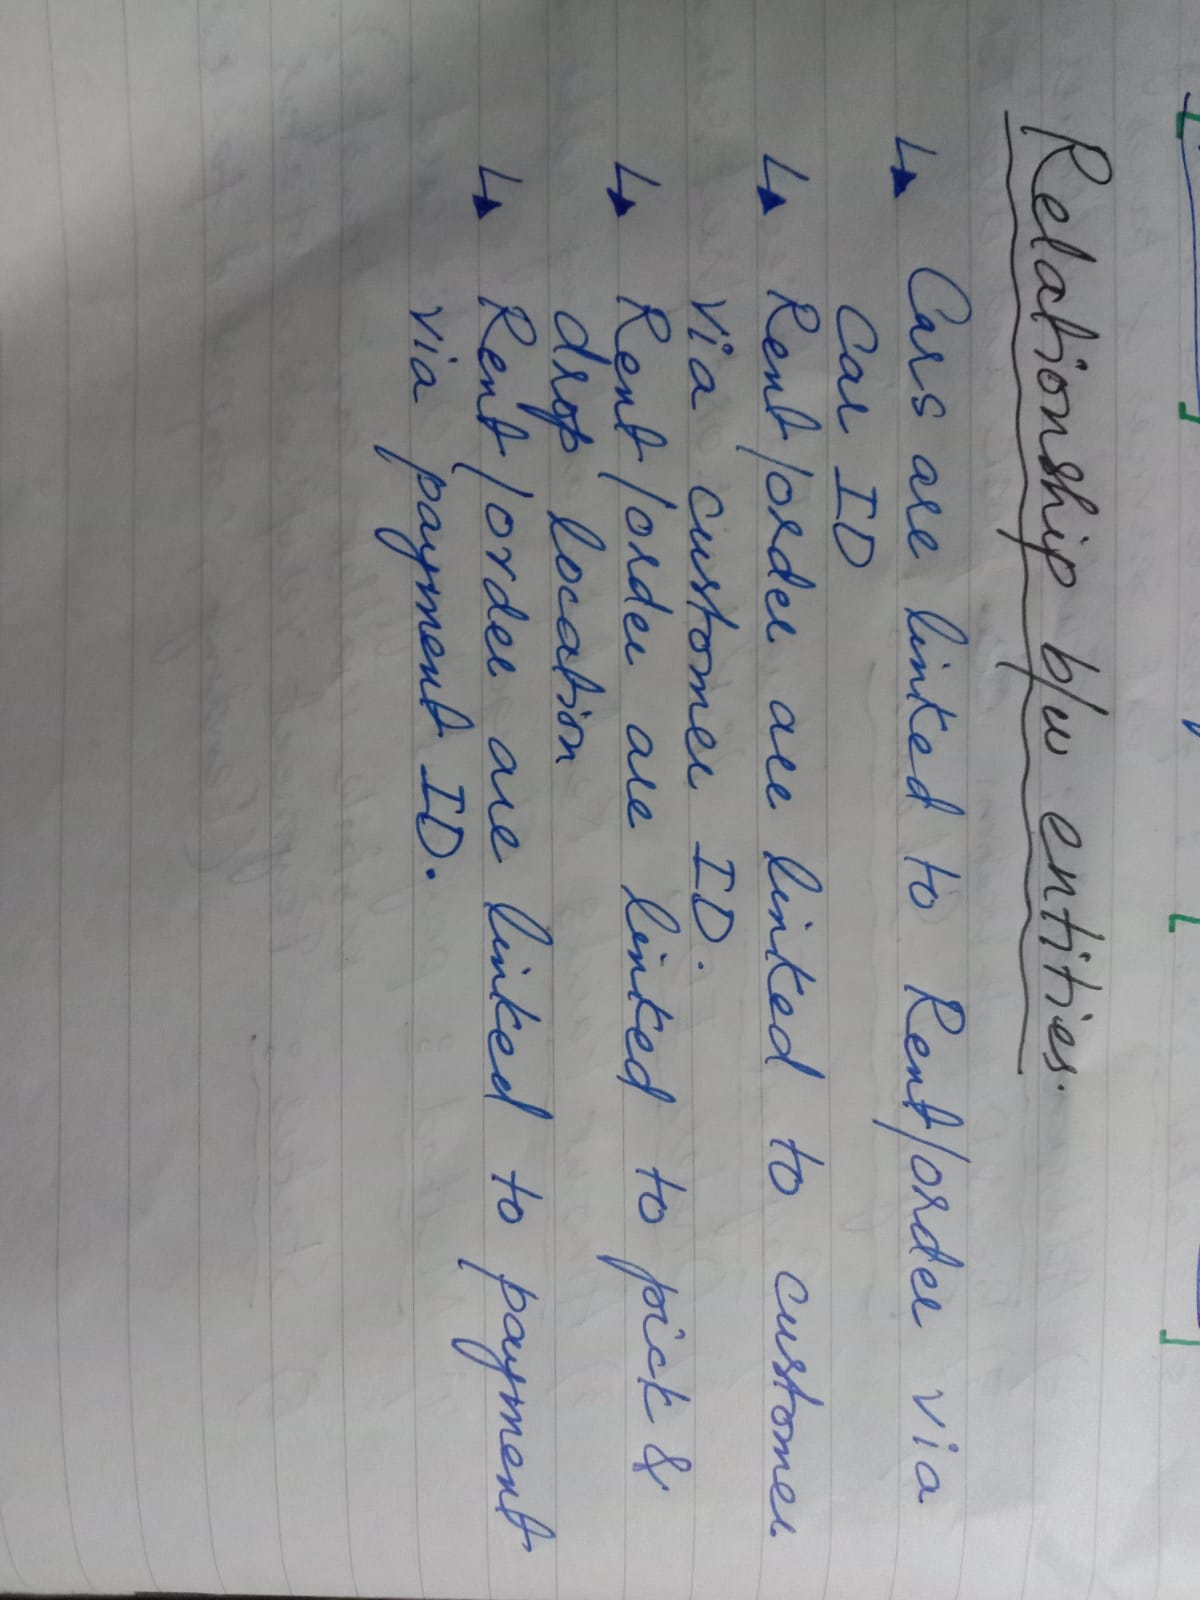 Relationship b/w entities.
↳ Cars are linked to Rent/order via
Car ID
↳ Rent/order are linked to customer
via customer ID.
↳ Rent/order are linked to pick &
drop location
↳ Rent/order are linked to payment
via payment ID.